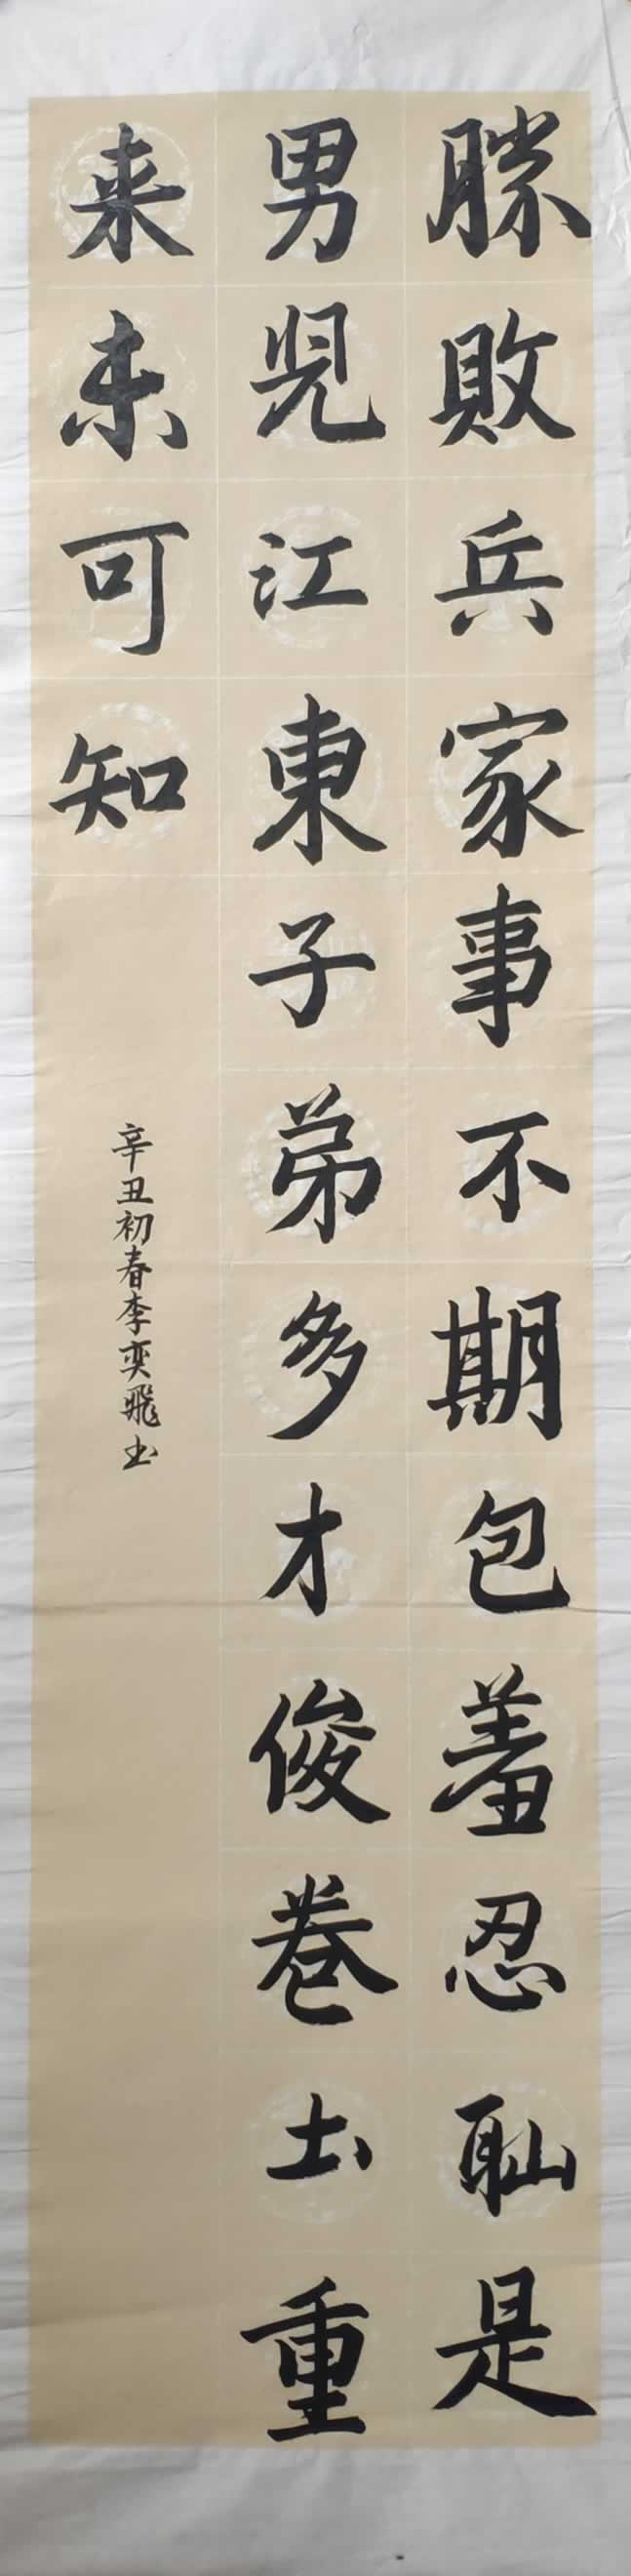 勝敗兵家事不期包羞忍耻是
男児江東子弟多才俊卷土重
来未可知
辛丑初春李奕飛书